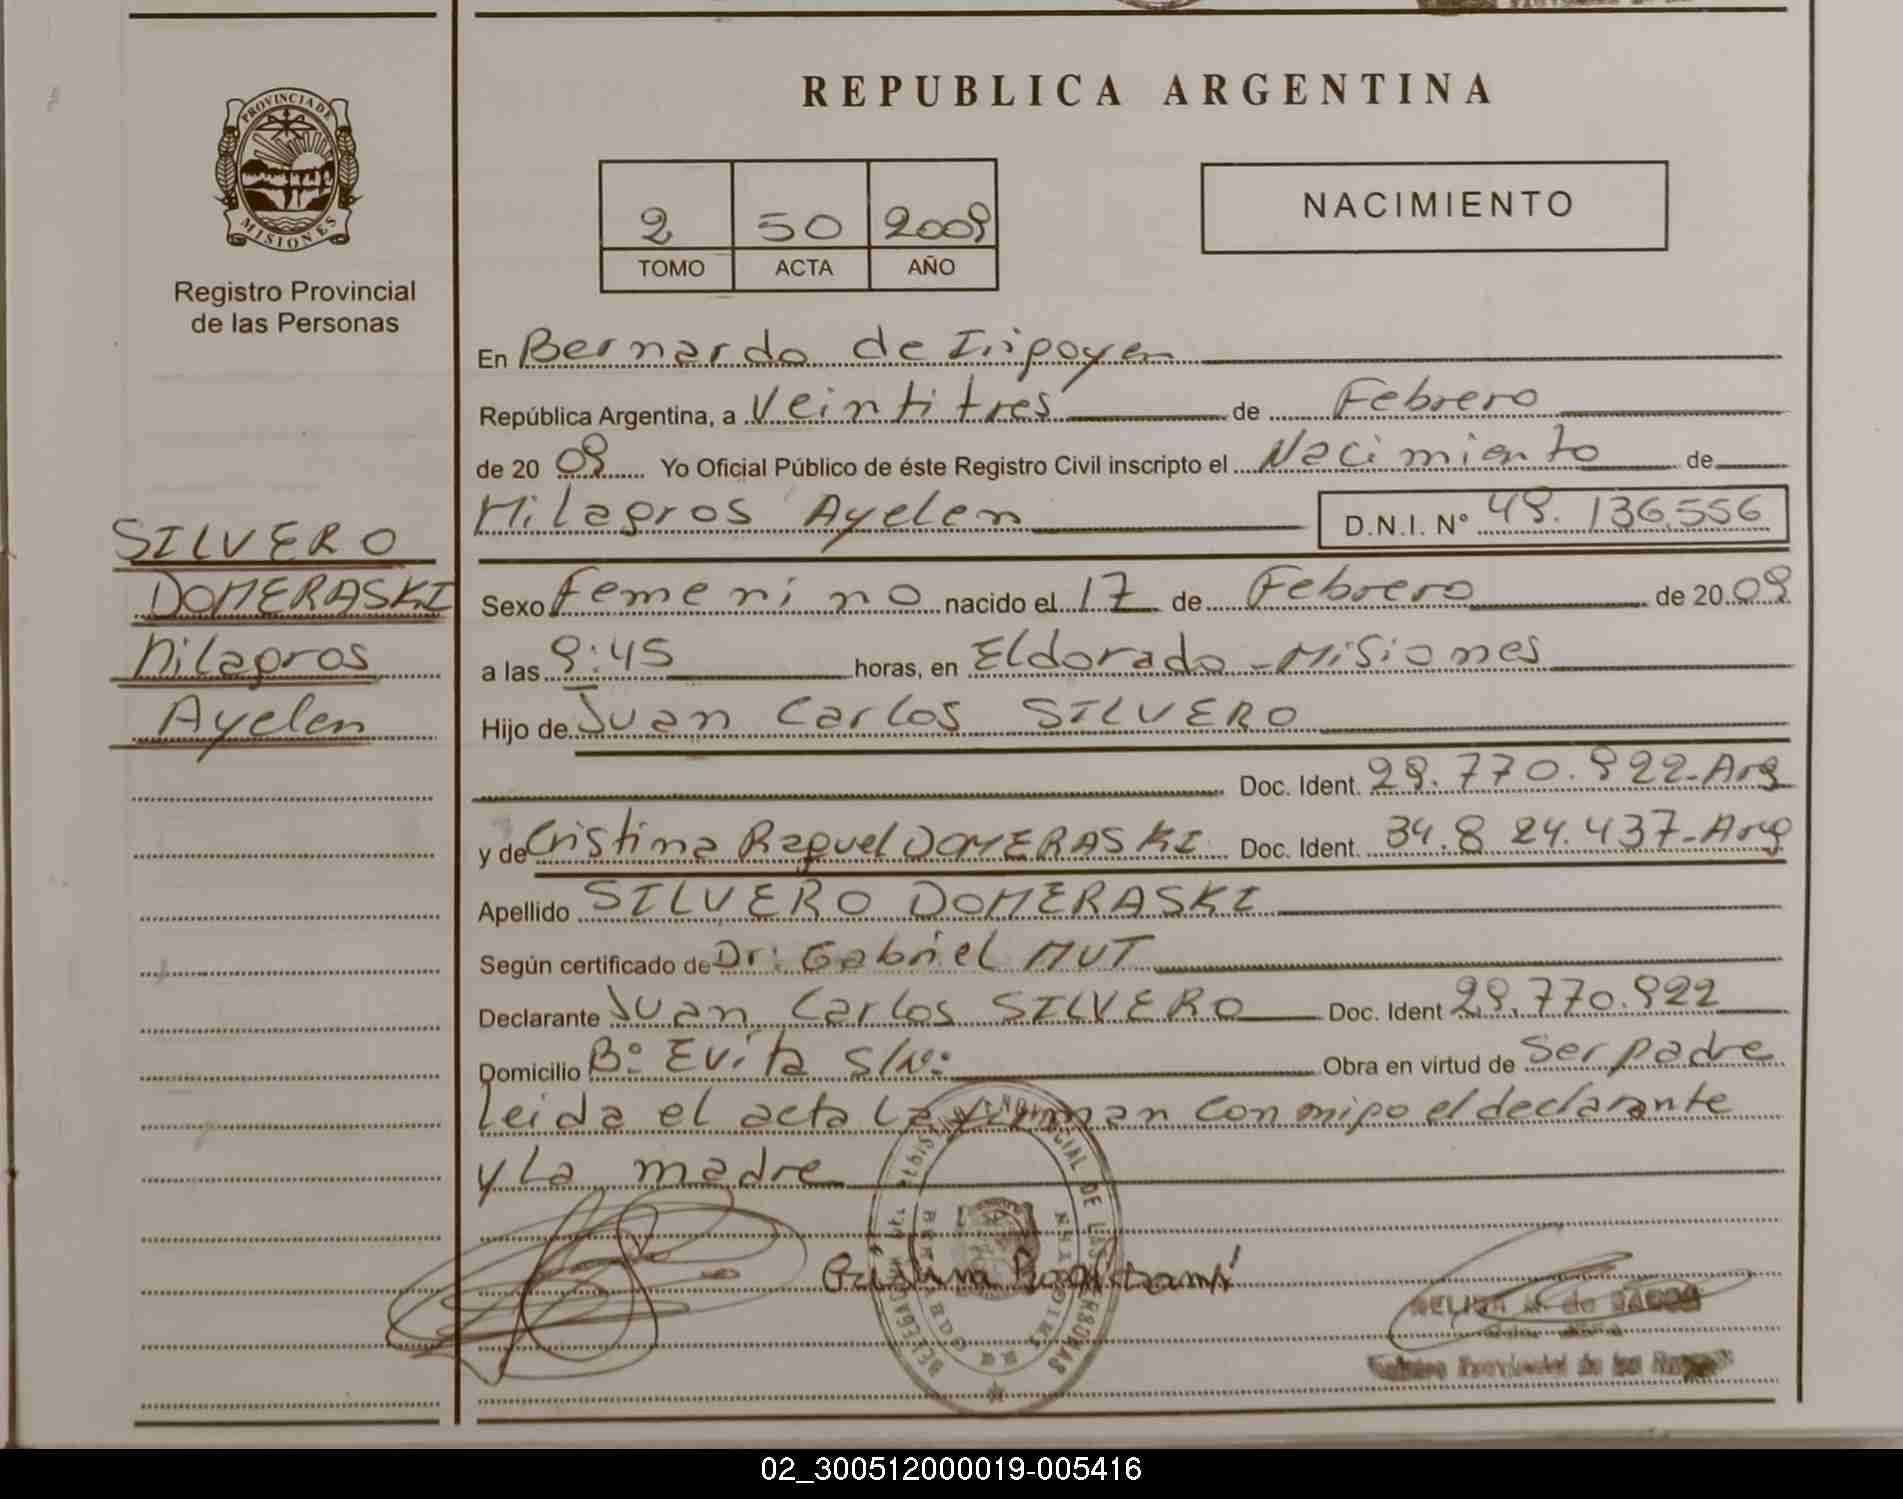 REPUBLICA ARGENTINA
PROVINCIA DE MISIONES
Registro Provincial
de las Personas
2 50 2009
TOMO ACTA AÑO
NACIMIENTO
En Bernardo de Iripoyen
República Argentina, a Veintitres de Febrero
de 20 09 Yo Oficial Público de éste Registro Civil inscripto el Nacimiento de
Milagros Ayelen D.N.I. N° 49.136.556
SILVERO
DOMERASKI
Milagros
Ayelen
Sexo Femenino nacido el 17 de Febrero de 20 09
a las 9:45 horas, en Eldorado - Misiones
Hijo de Juan Carlos SILVERO
Doc. Ident. 29.770.922-Arg
y de Cristina Raquel DOMERASKI Doc. Ident. 34.824.437-Arg
Apellido SILVERO DOMERASKI
Según certificado de Dr: Gabriel MUT
Declarante Juan Carlos SILVERO Doc. Ident 29.770.922
Domicilio B° Evita S/N: Obra en virtud de Ser padre
Leida el acta La firman con mipo el declarante
y La madre
DE LAS PERSONAS
02_300512000019-005416